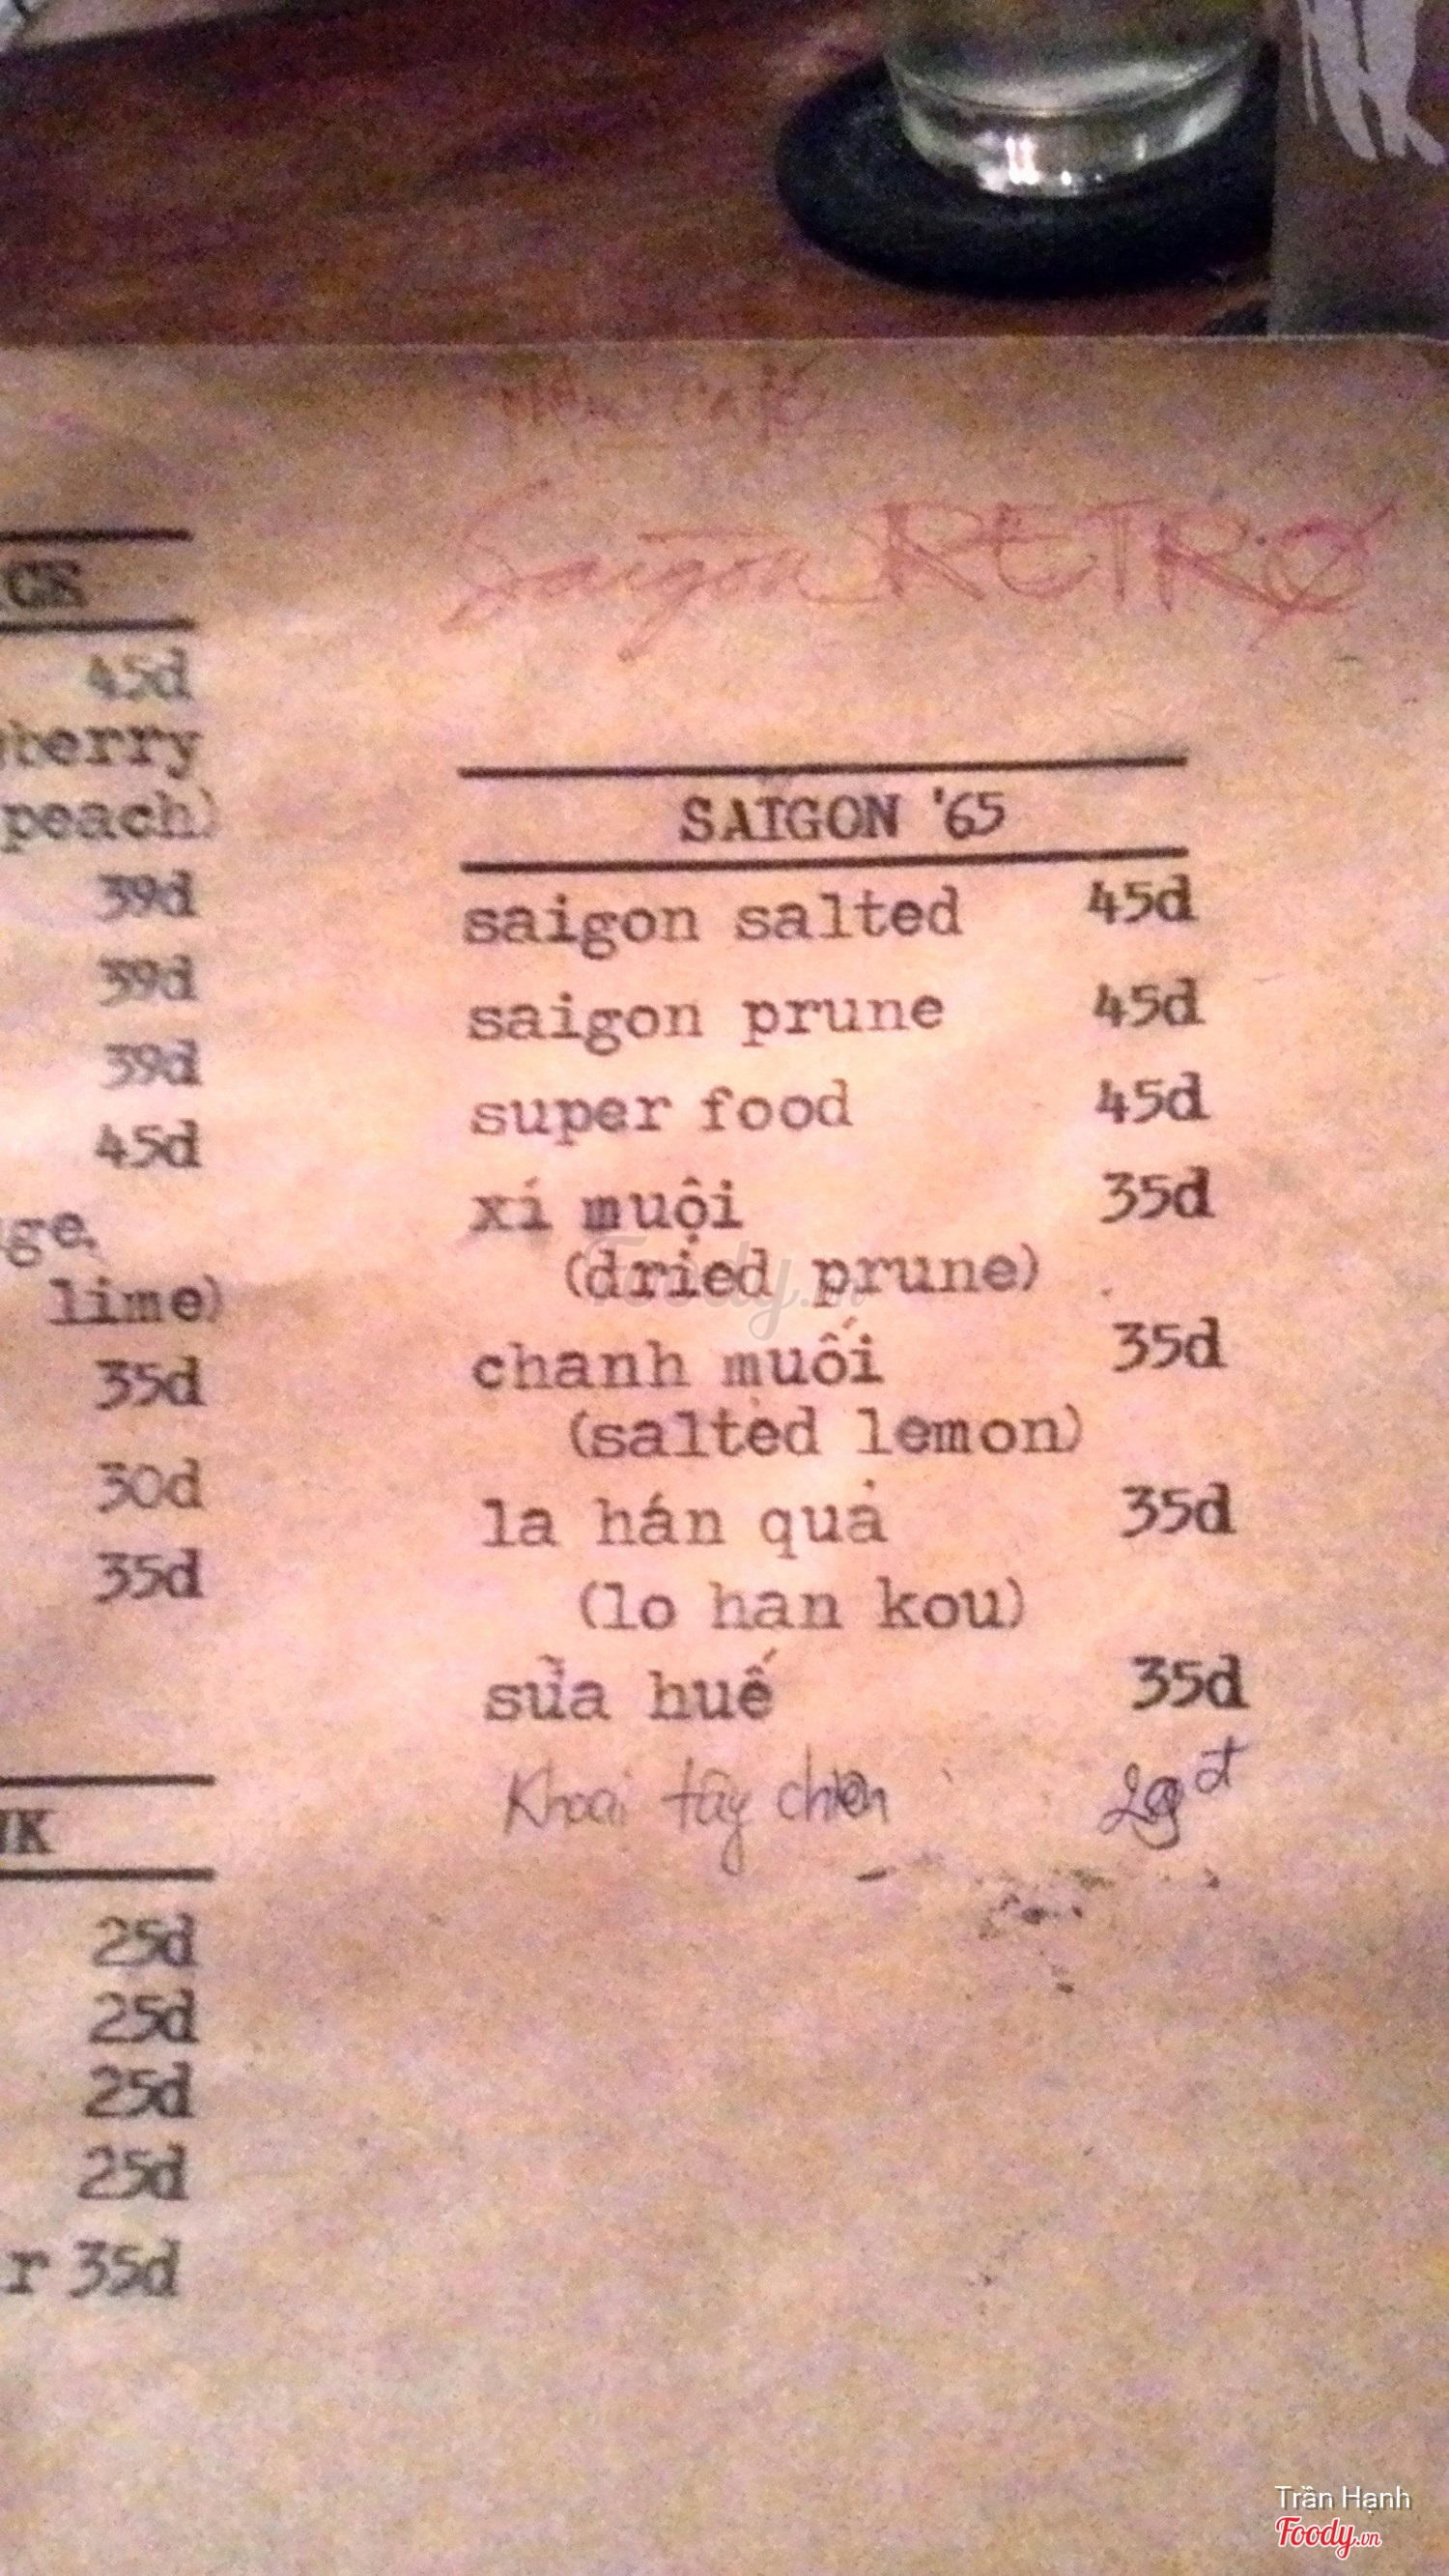 Saigon RETRO
CE
45d
berry
peach)
39d
39d
39d
45d
ge,
lime)
35d
30d
35d
NK
25d
25d
25d
25d
r 35d
SAIGON '65
saigon salted 45d
saigon prune 45d
super food 45d
xí muội 35d
(dried prune)
chanh muối 35d
(salted lemon)
la hán quả 35d
(lo han kou)
sủa huế 35d
Khoai tây chiên
Foody.vn
Trần Hạnh
Foody.vn